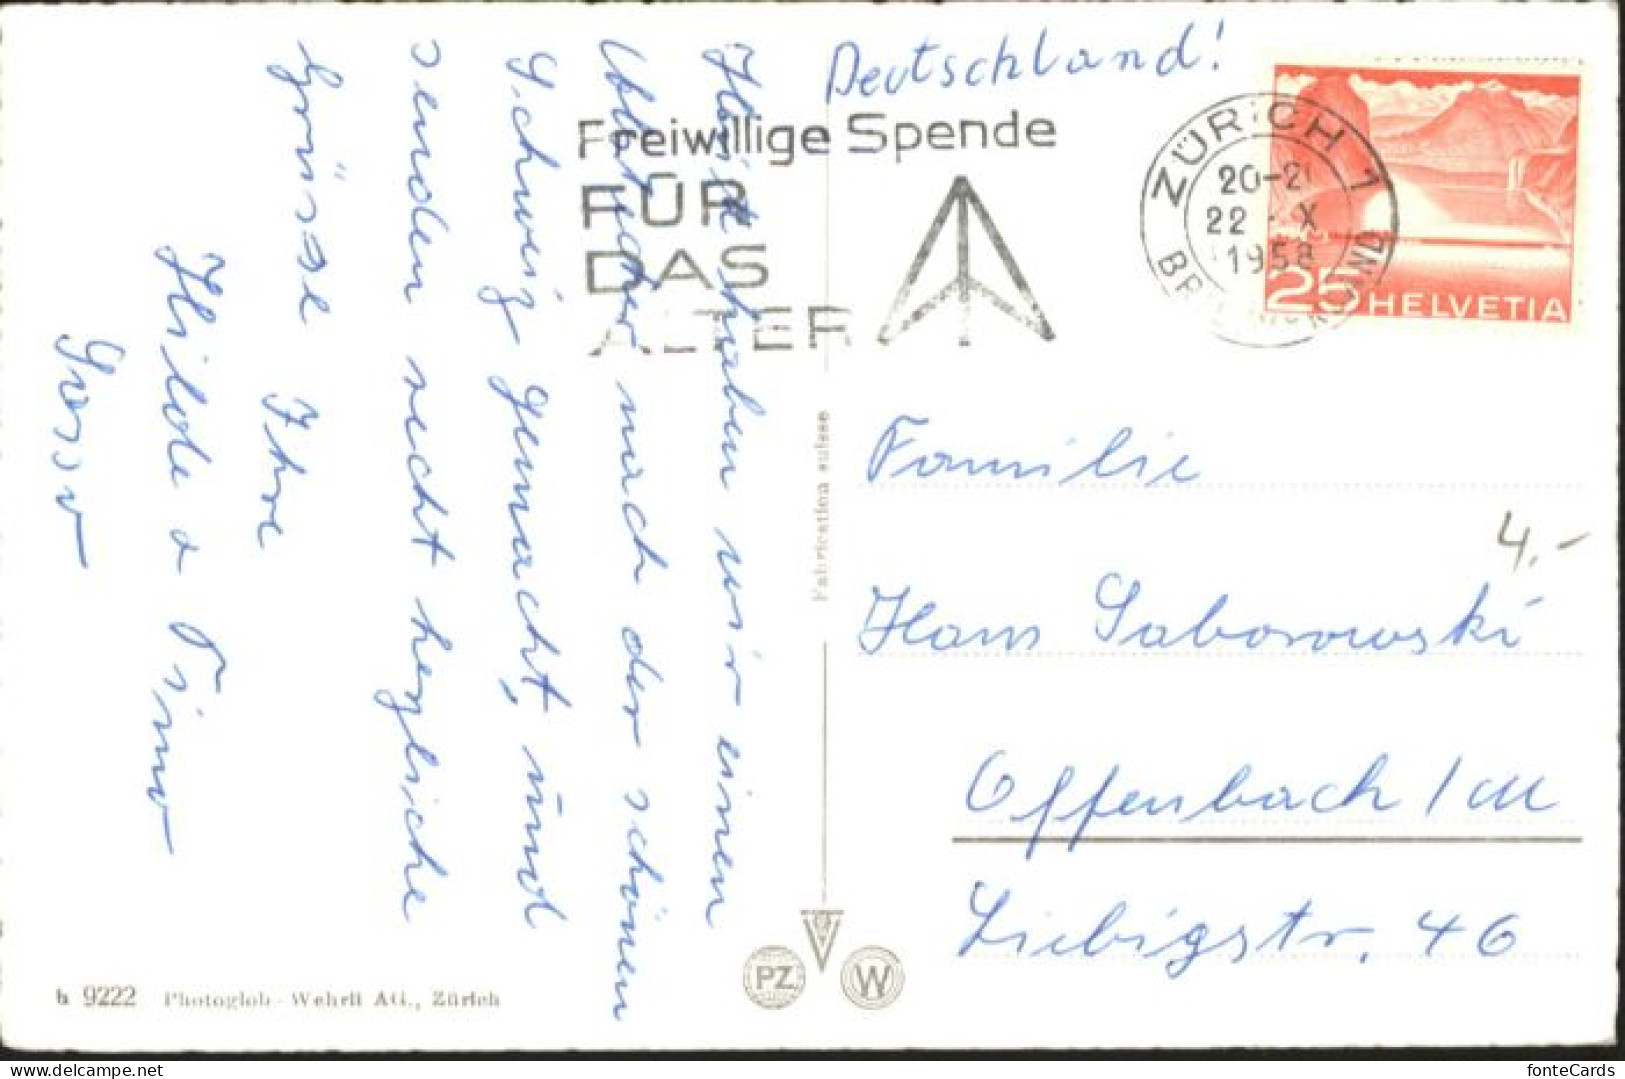 Deutschland!
Freiwillige Spende
FÜR
DAS
ALTER
ZÜRICH 1
20-2
22 · X
1958
25 HELVETIA
Heute haben wir einen
nach der schönen
Schweiz gemacht, und
senden recht herzliche
Grüsse Ihre
Hilde & Timo
Fabrication suisse
Familie
Hans Saborowski
4.-
Offenbach / M
Liebigstr. 46
PZ W
h 9222 Photoglob - Wehrli AG., Zürich
delcampe.net
fonteCards